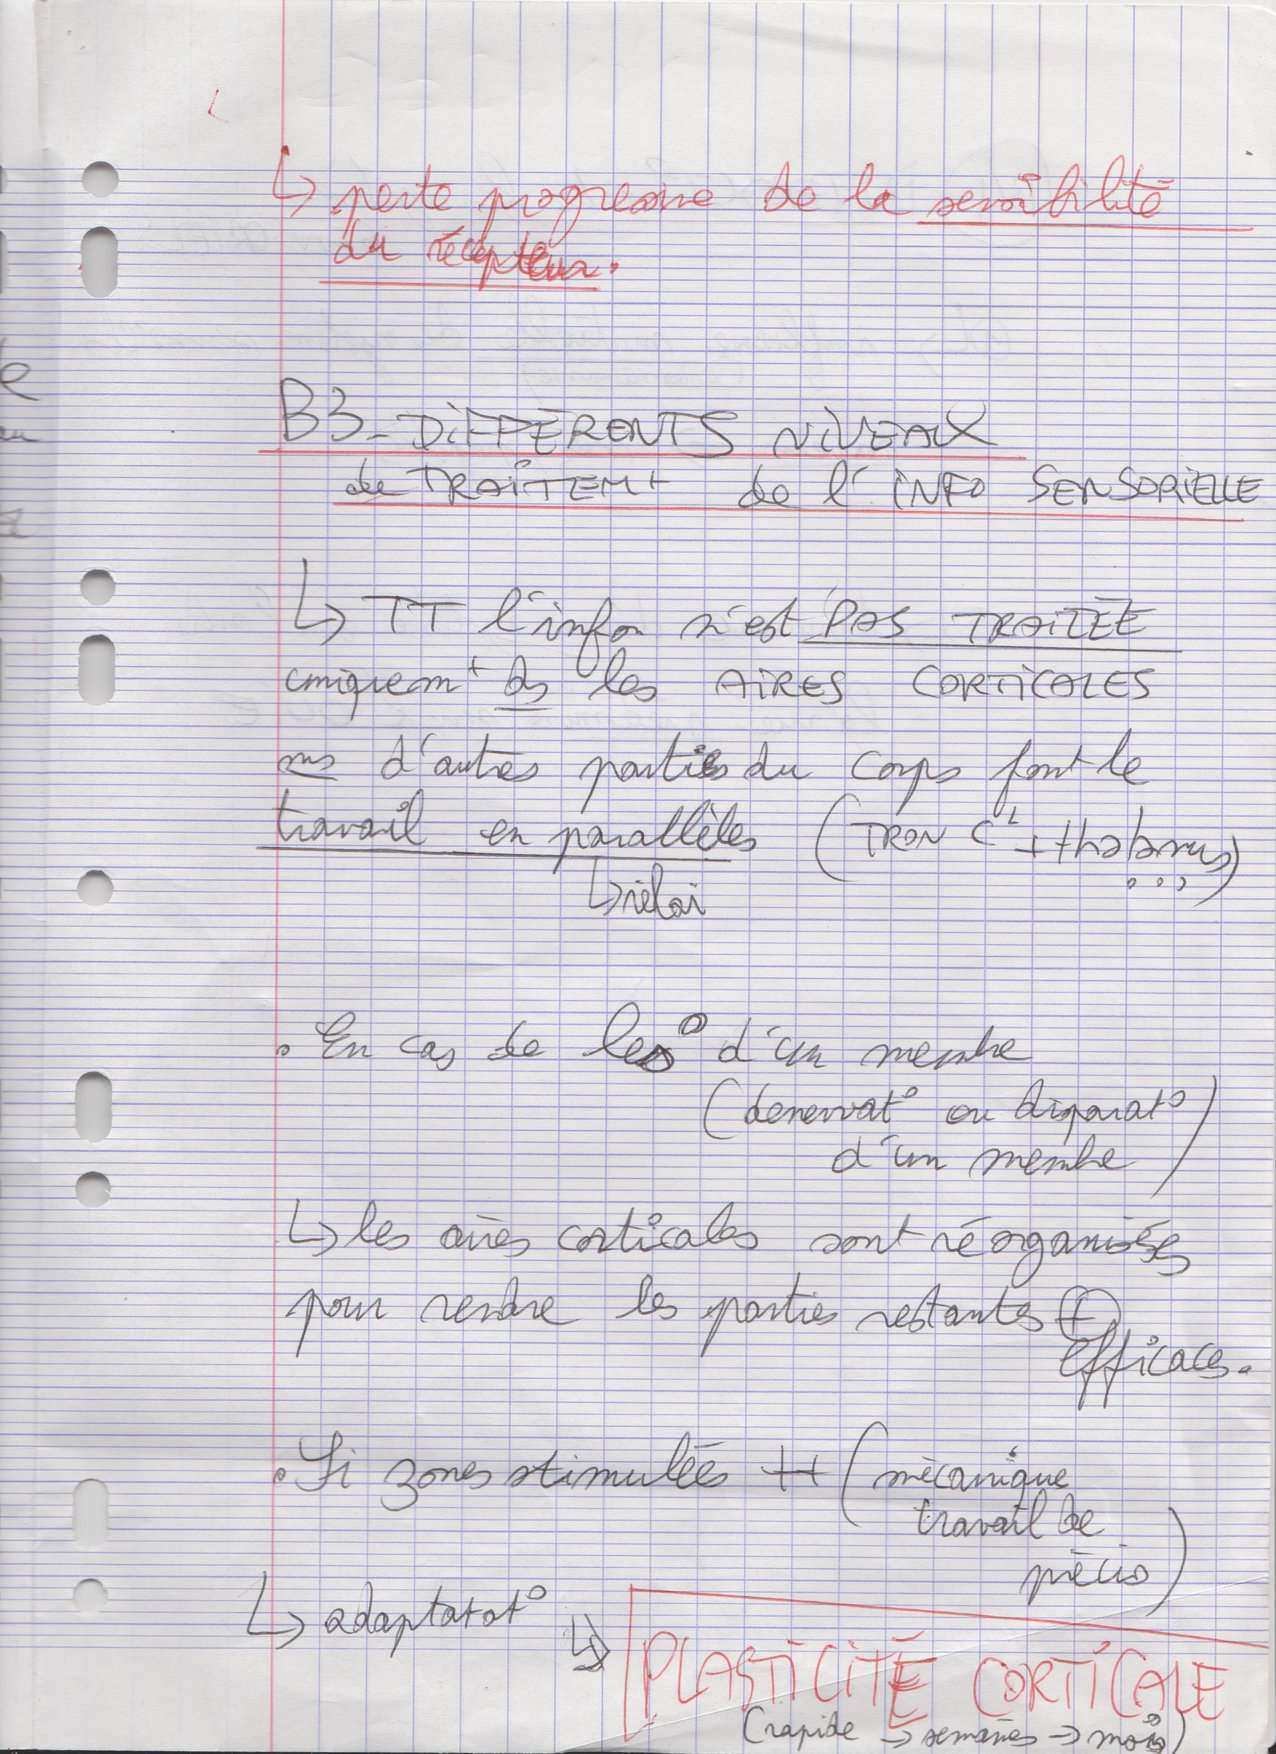 ↳ perte progressive de la sensibilité
du récepteur.
B3_ DIFFÉRENTS NIVEAUX
de TRAITEMt de l'INFO SENSORIELLE
↳ TT l'info n'est PAS TRAITÉE
uniquemt ds les AIRES CORTICALES
ms d'autres parties du corps font le
travail en parallèles (TRON CL + thalamus)
...
↳ relai
. En cas de les° d'un membre
(denervat° ou disparat°
d'un membre)
↳ les aires corticales sont réorganisées
pour rendre les parties restantes ⊕
efficaces.
. Si zones stimulées ++ (mécanique
travail de
précis)
↳ adaptatat° ↳ PLASTICITÉ CORTICALE
(rapide → semaines → mois)